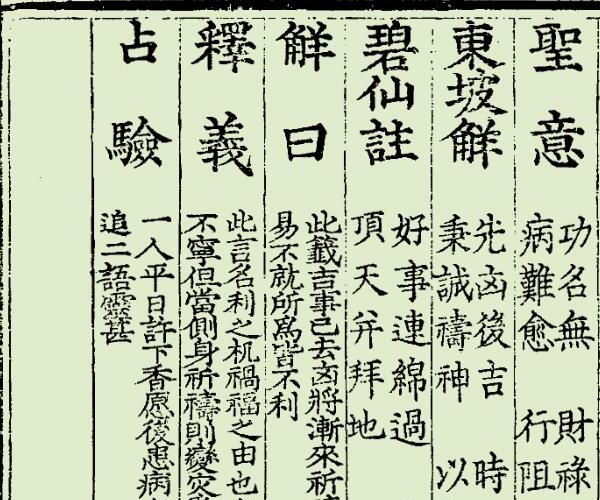 聖意
功名無 財祿
病難愈 行阻
東坡解
先凶後吉 時
秉誠禱神 以
碧仙註
好事連綿過
頂天并拜地
解曰
此籤吉事已去凶將漸來祈
易不就所為皆不利
釋義
此言名利之机禍福之由也
不寧但當側身祈禱則變災
占驗
一人平日許下香愿後患病
追二語靈甚